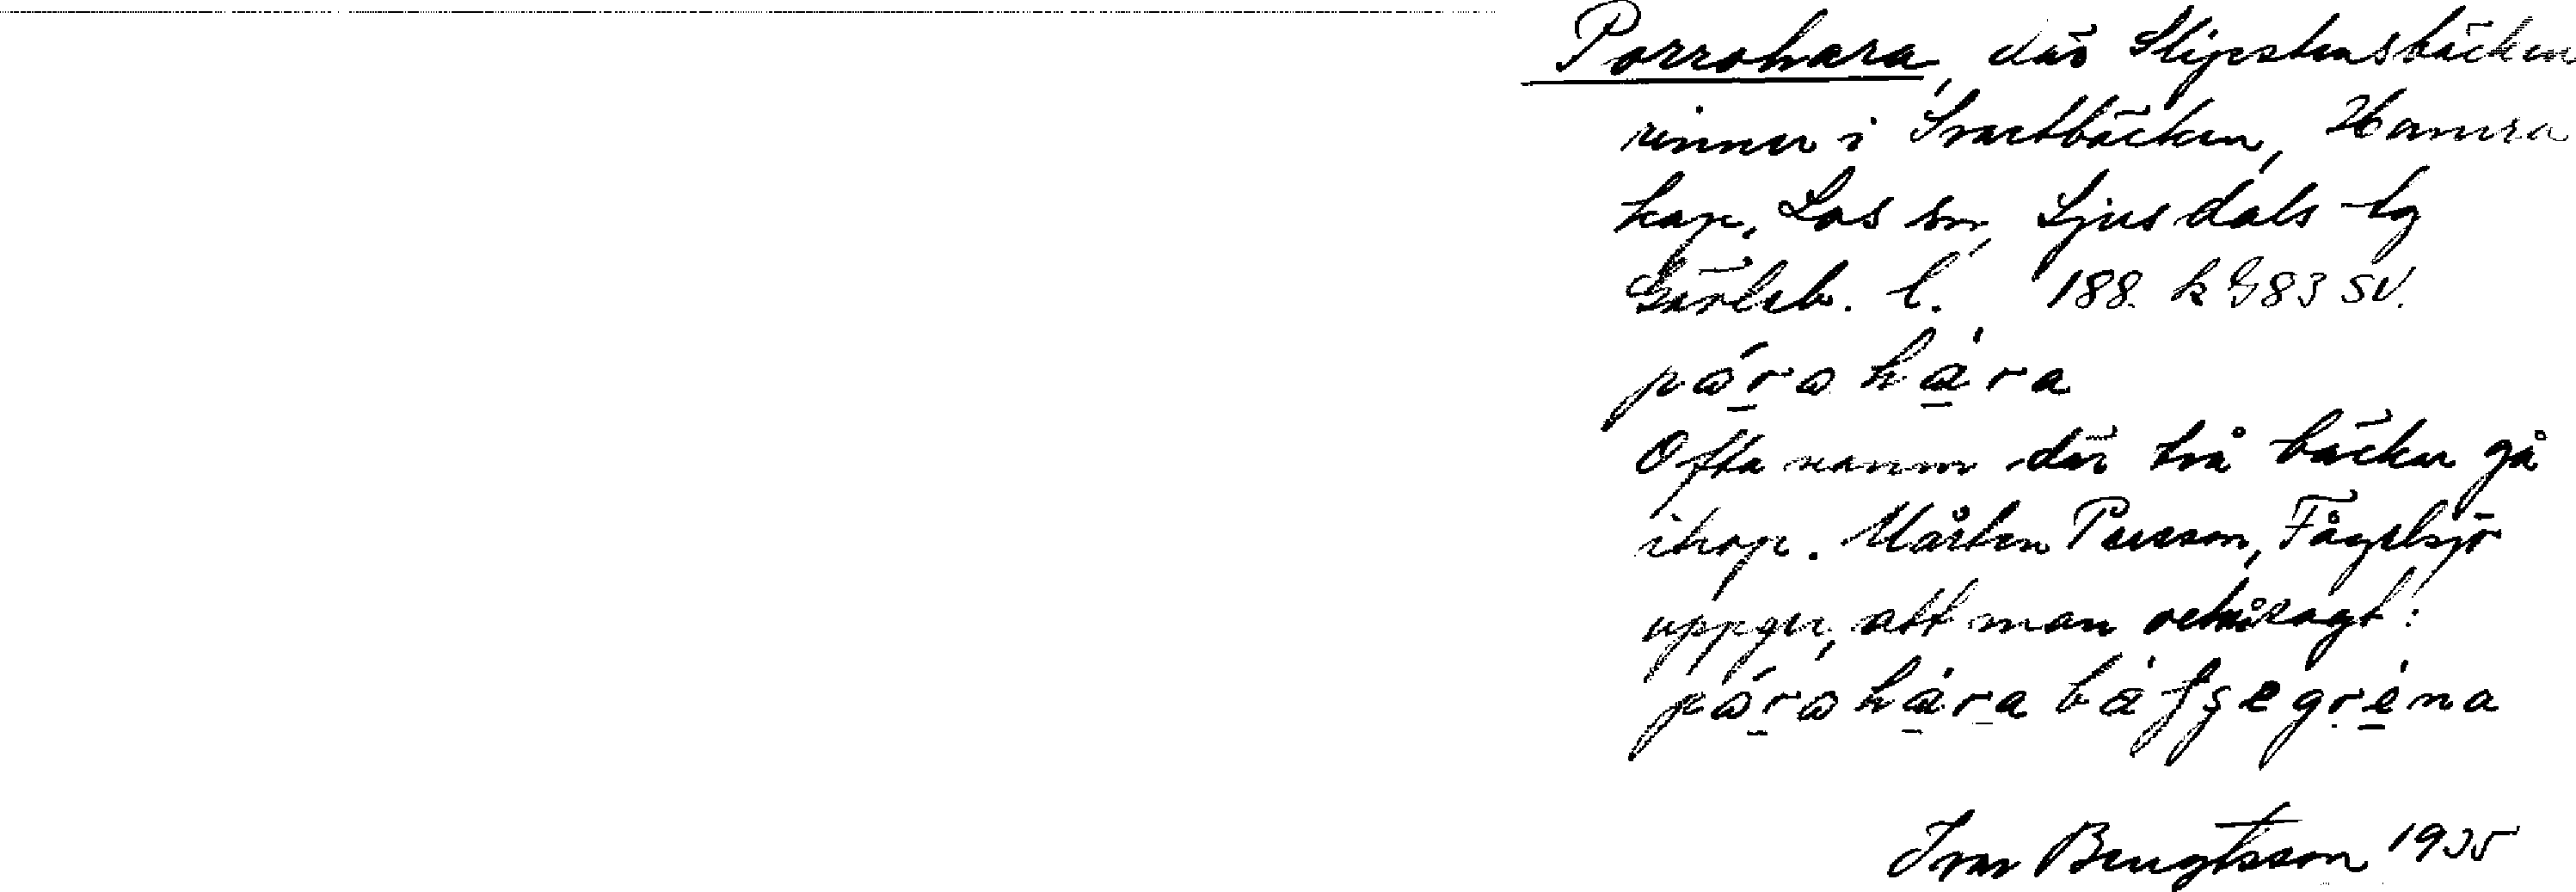 Porrohara, där Slipstensbäcken
rinner i Svartbäcken, Hamra
kap., Los sn, Ljusdals tg
Gävleb. l. 188. k G83 SV.
Ofta namn där två bäckar gå
ihop. Mårten Persson, Fågelsjö
uppger, att man också sagt:
Ivar Bengtsson 1935